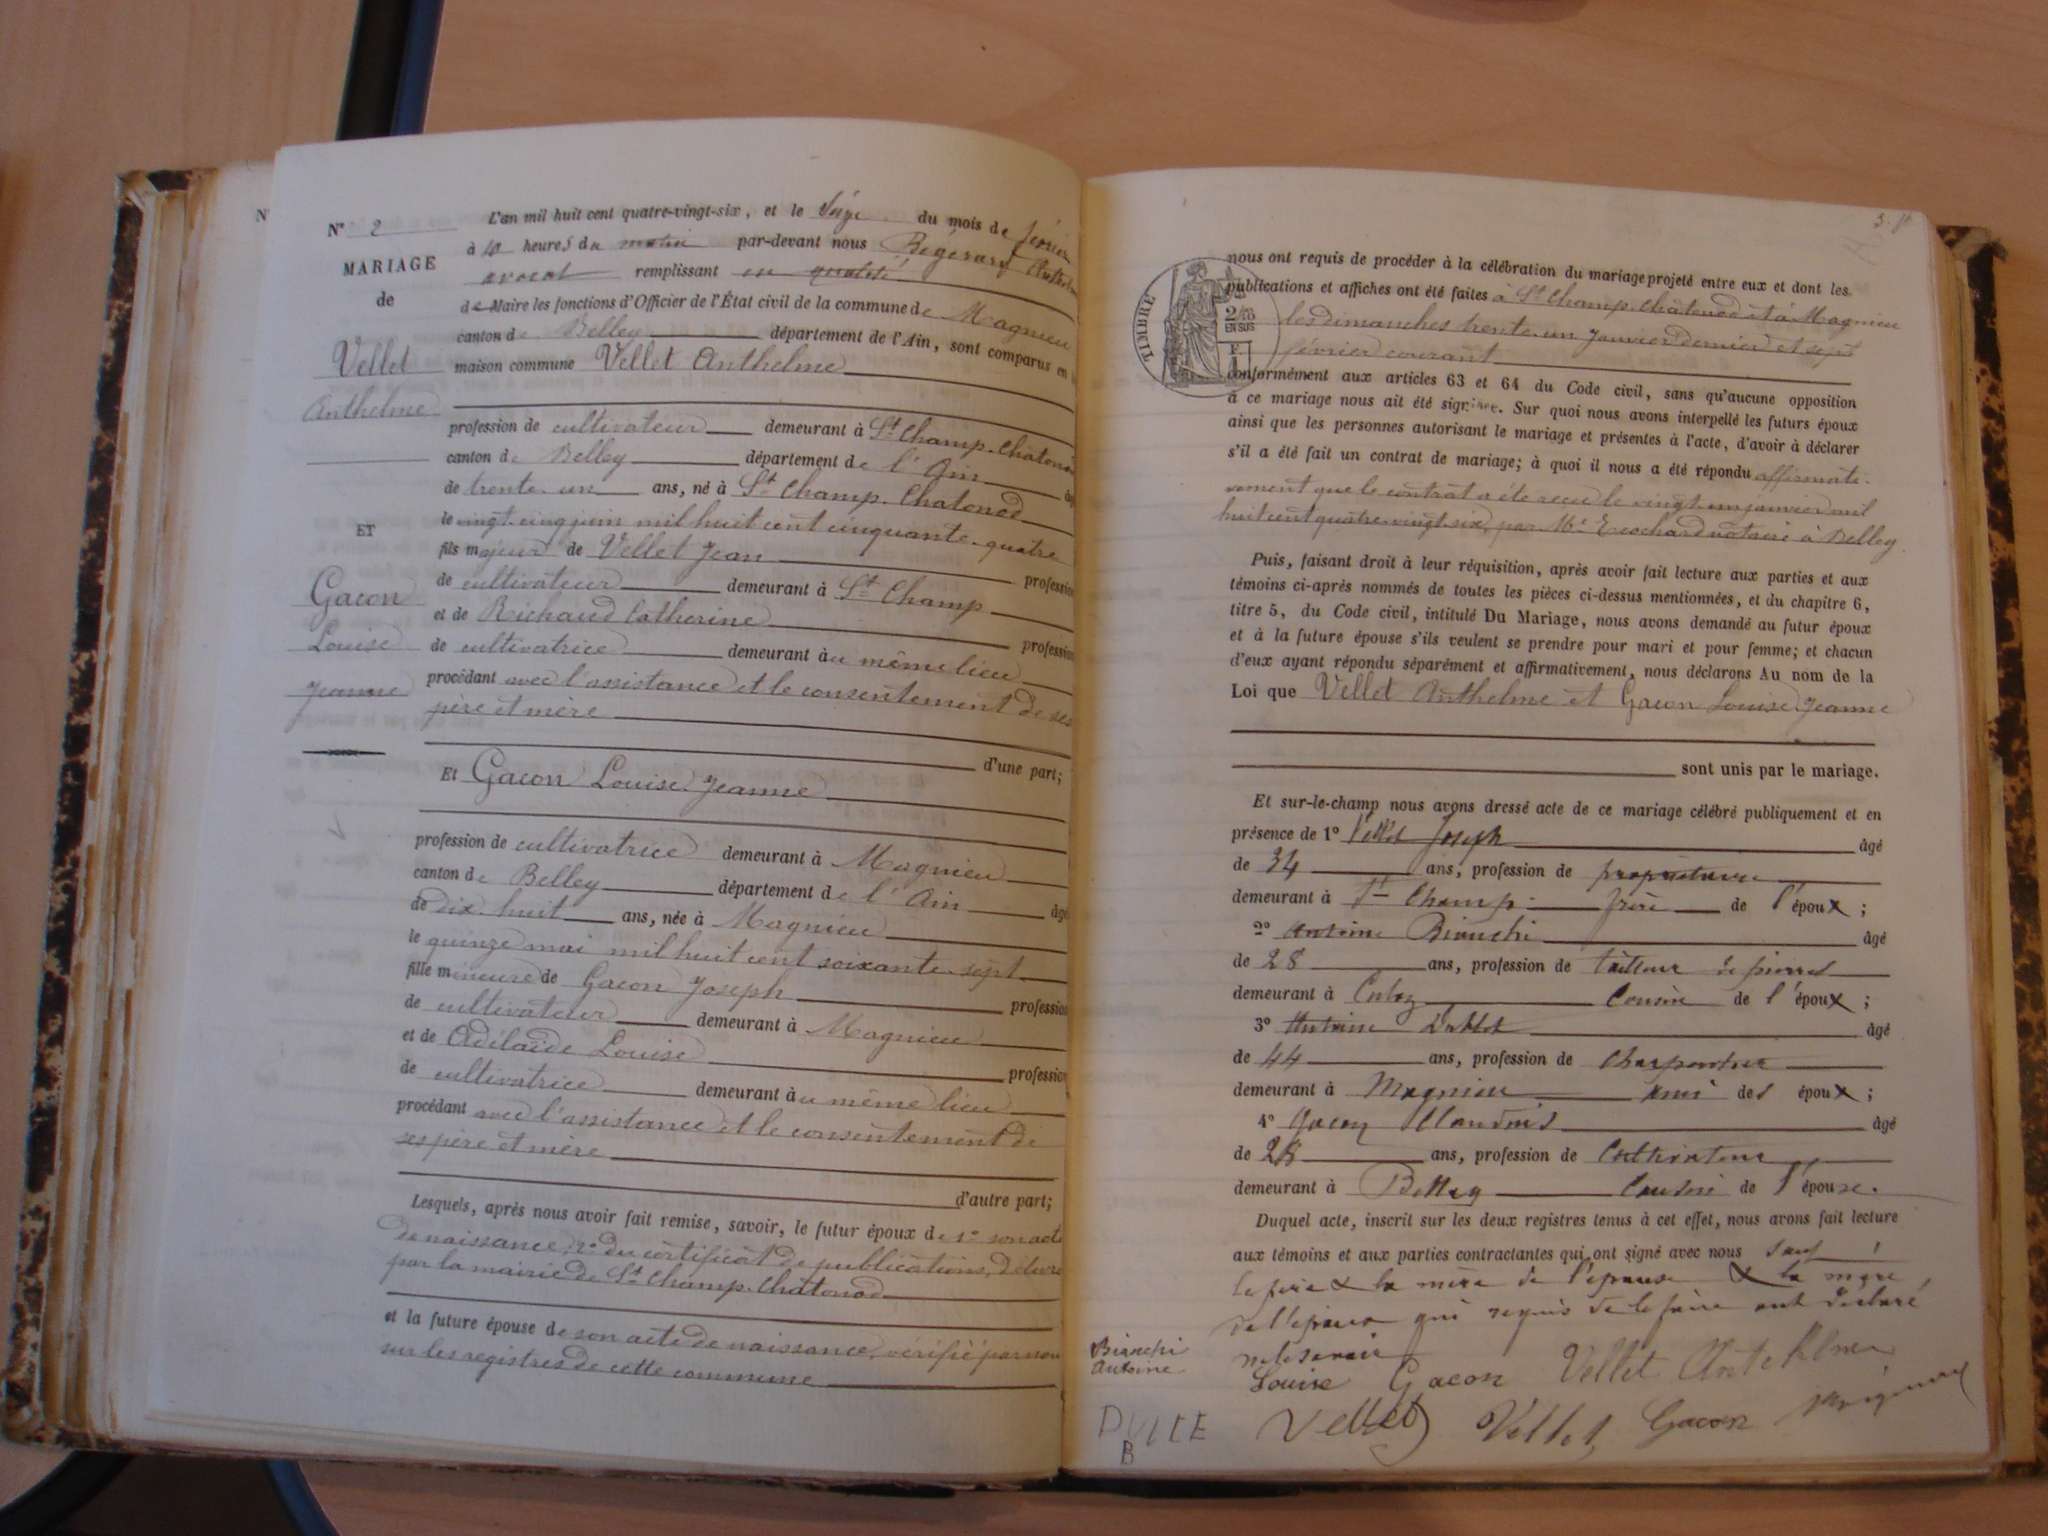 N° 2
MARIAGE
de
Vellet
Anthelme
ET
Gacon
Louise
Jeanne
L'an mil huit cent quatre-vingt-six, et le seize du mois de février
à 10 heures du matin par-devant nous
avocat remplissant en qualité
de Maire les fonctions d'Officier de l'État civil de la commune de Magnieu
canton de Belley département de l'Ain, sont comparus en
maison commune Vellet Anthelme
profession de cultivateur demeurant à St Champ-Chatonod
canton de Belley département de l'Ain
de trente-un ans, né à St Champ-Chatonod
le vingt-cinq juin mil huit cent cinquante-quatre
fils majeur de Vellet Jean profession
de cultivateur demeurant à St Champ
et de Richaud Catherine profession
de cultivatrice demeurant au même lieu
procédant avec l'assistance et le consentement de ses
père et mère
d'une part;
Et Gacon Louise Jeanne
profession de cultivatrice demeurant à Magnieu
canton de Belley département de l'Ain âgé
de dix-huit ans, née à Magnieu
le quinze mai mil huit cent soixante-sept
fille mineure de Gacon Joseph profession
de cultivateur demeurant à Magnieu
et de Adélaïde Louise profession
de cultivatrice demeurant au même lieu
procédant avec l'assistance et le consentement de
ses père et mère
d'autre part;
Lesquels, après nous avoir fait remise, savoir, le futur époux de 1° son acte
de naissance, 2° du certificat de publications, délivré
par la mairie de St Champ-Chatonod
et la future épouse de son acte de naissance, vérifié par nous
sur les registres de cette commune
TIMBRE
2/10
EN SUS
nous ont requis de procéder à la célébration du mariage projeté entre eux et dont les
publications et affiches ont été faites à St Champ-Châtonod et à Magnieu
les dimanches trente-un janvier dernier et sept
février courant
conformément aux articles 63 et 64 du Code civil, sans qu'aucune opposition
à ce mariage nous ait été signifiée. Sur quoi nous avons interpellé les futurs époux
ainsi que les personnes autorisant le mariage et présentes à l'acte, d'avoir à déclarer
s'il a été fait un contrat de mariage; à quoi il nous a été répondu affirmati-
vement que le contrat a été reçu le vingt-un janvier mil
huit cent quatre-vingt-six, par Me Ecochard notaire à Belley.
Puis, faisant droit à leur réquisition, après avoir fait lecture aux parties et aux
témoins ci-après nommés de toutes les pièces ci-dessus mentionnées, et du chapitre 6,
titre 5, du Code civil, intitulé Du Mariage, nous avons demandé au futur époux
et à la future épouse s'ils veulent se prendre pour mari et pour femme; et chacun
d'eux ayant répondu séparément et affirmativement, nous déclarons Au nom de la
Loi que Vellet Anthelme et Gacon Louise Jeanne
sont unis par le mariage.
Et sur-le-champ nous avons dressé acte de ce mariage célébré publiquement et en
présence de 1° Vellet Joseph âgé
de 34 ans, profession de propriétaire
demeurant à St Champ frère de l'époux;
2° Antoine Bianchi âgé
de 28 ans, profession de tailleur de pierres
demeurant à cousin de l'époux;
3° Antoine âgé
de 44 ans, profession de charpentier
demeurant à Magnieu ami des époux;
4° Gacon Claudius âgé
de 28 ans, profession de cultivateur
demeurant à Belley cousin de l'épouse.
Duquel acte, inscrit sur les deux registres tenus à cet effet, nous avons fait lecture
aux témoins et aux parties contractantes qui ont signé avec nous sauf
le père & la mère de l'épouse & la mère
de l'époux qui requis de le faire ont déclaré
ne le savoir
Bianchi
Antoine
Louise Gacon Vellet
Vellet Vellet Gacon